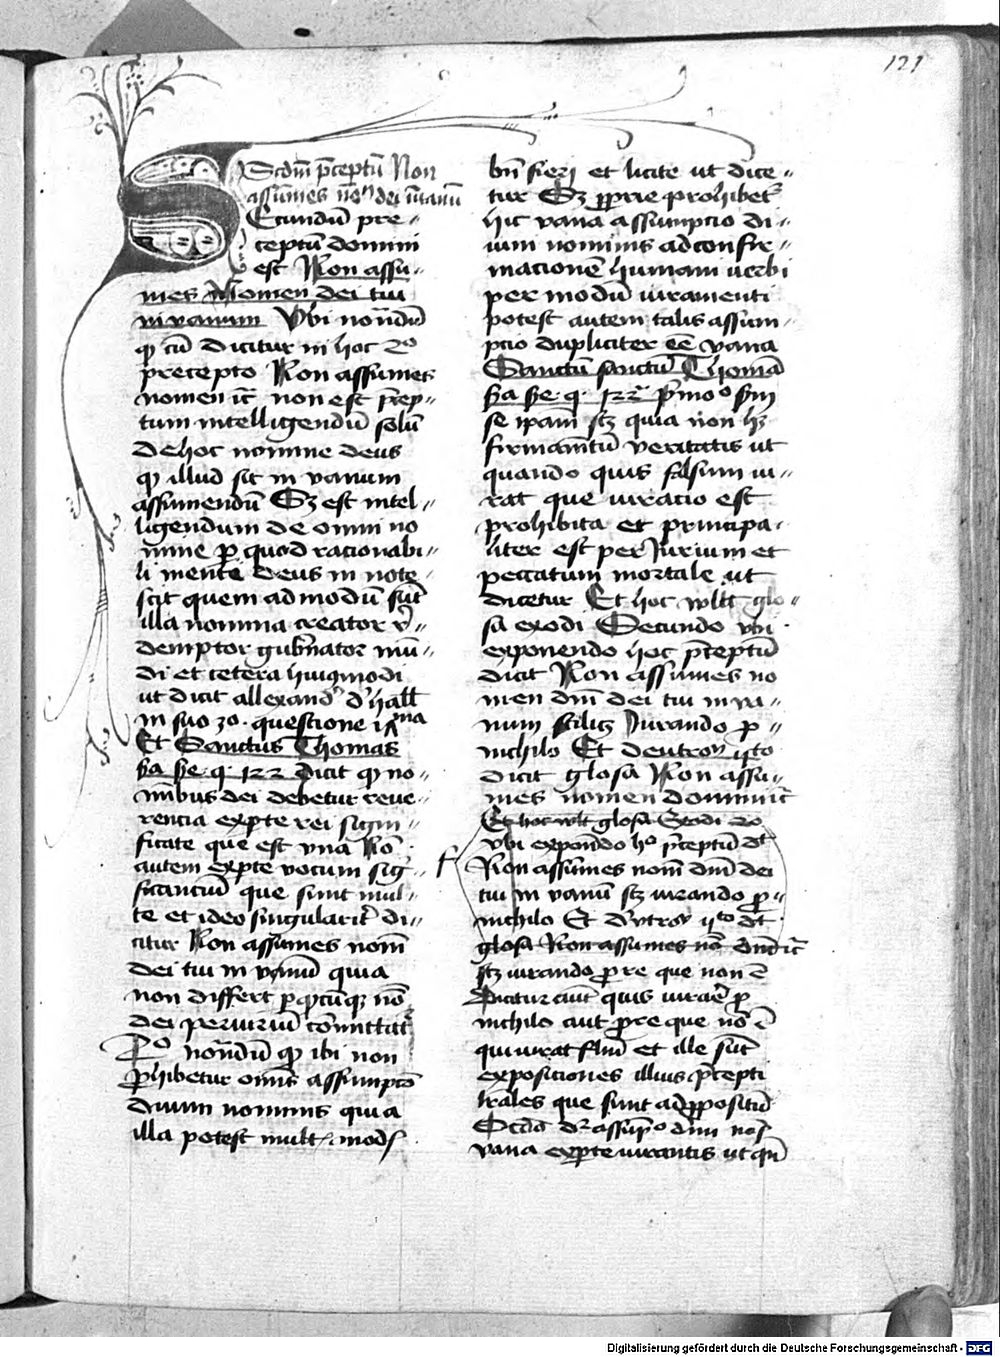 121
Scdm p̄ceptū Non
assumes nomē dei ī uanū
Ecundū pre-
ceptū domini
est Non assu-
mes Nomen dei tui
in vanum Vbi notādū
qꝫ cū dicitur in hoc 2º
precepto Non assumes
nomen etc̄ non est p̄cep-
tum intelligendū solū
de hoc nomine deus
qꝫ illud sit in vanum
assumendū Sꝫ est intel-
ligendum de omni no
mine ꝑ quod racionabi-
li mente deus in note-
scit quem ad modū sūt
illa nomina creator re-
demptor gub̄nator mū-
di et cetera huiꝰmodi
ut dicit allexandꝰ d' hall
in suo 3º questione
Et Sanctus Thomas
2ª 2e q 122 dicit qꝫ no-
mībus dei debetur reue-
rencia exꝑte rei signi-
ficate que est vna Nō
autem exꝑte vocum sig-
ficanciū que sunt mul-
te et ideo singularit̄ di-
citur Non assumes nomē
dei tui in vanū quia
non differt ꝑ qdcūqꝫ nō
dei periuriū cōmittat̄
2º notādū qꝫ ibi non
ꝓhibetur omīs assumpcō
diuini nominis quia
illa potest mult modꝭ
bn̄ fieri et licite ut dice-
tur Sꝫ ꝓprie prohibet̄
hic vana assumpcio di-
uini nominis ad confir-
macionē humani uerbi
per modū iuramenti
potest autem talis assum-
pcio dupliciter eē vana
Scdm̄ sanctū Thomā
2ª 2e q 122 p̄moº scdm
se ipam sꝫ quia non hꝫ
firmamētū veritatis ut
quando quis falsum iu-
rat que iuracio est
prohibita et principa-
liter est periurium et
peccatum mortale ut
dicetur Et hoc wlt glo-
sa exodi Secundo vbi
exponendo hoc p̄ceptū
dicit Non assumes no
men dn̄i dei tui in va-
num scilicꝫ Iurando ꝓ
nichilo Et deutron̄ qͥto
dicit glosa Non assu-
mes nomen domini etc̄
Et hoc wlt glosa Exodi 2o
vbi exponēdo hº p̄ceptū dt
Non assumes nomē dn̄i dei
tui in vanū sꝫ iurando ꝓ
nichilo Et deutron̄ qͥto dt
glosa Non assumes nomē dn̄i etc̄
sꝫ iurando ꝓ re que non ē
Dicitur aut quis iurare ꝓ
nichilo aut ꝓ re que nō ē
qui iurat flm̄ et ille sūt
exposiciones illius p̄cepti
trales que sunt ad ꝓpositū
Scdā dr̄ assūpcº diui nōs
vana exꝑte iurantis ut qn̄
Digitalisierung gefördert durch die Deutsche Forschungsgemeinschaft - DFG